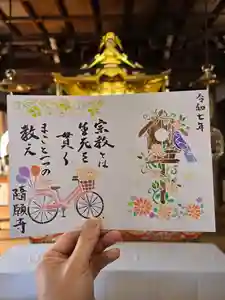 令和七年
宗教とは
生死を
貫く
まことの
教え
随願寺